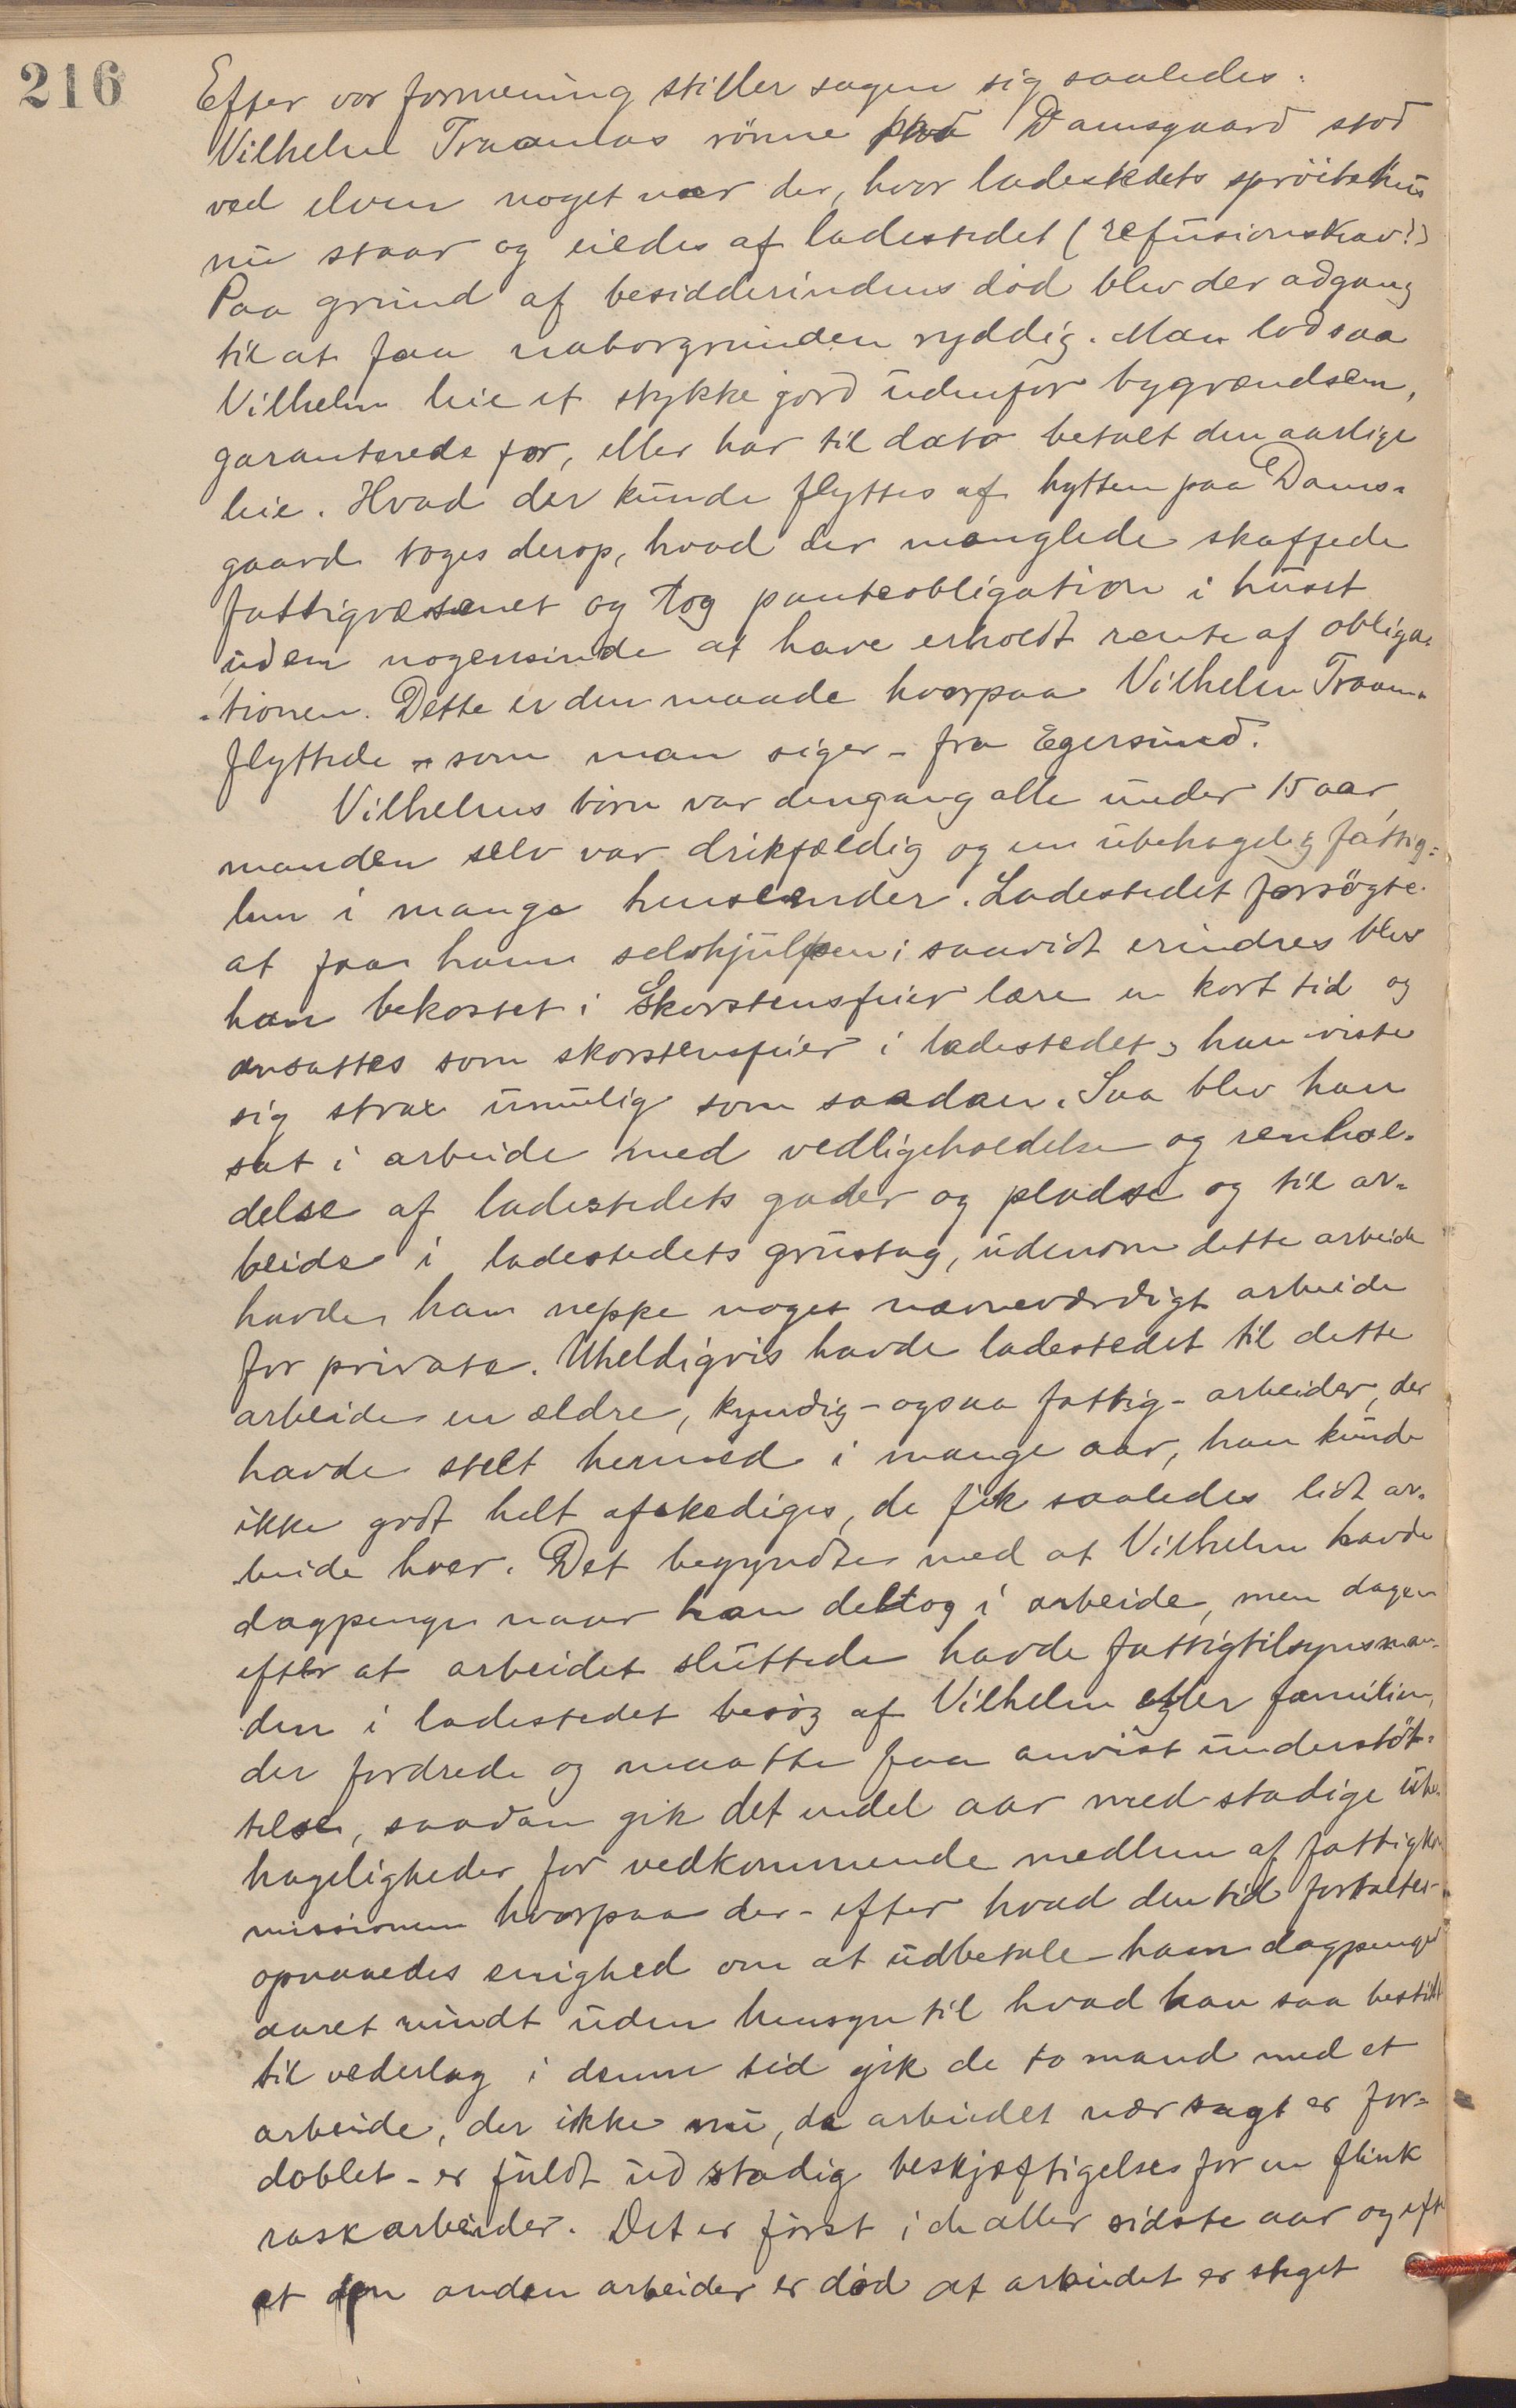 216
Efter vor formening stiller sagen sig saaledes.
Vilhelm Traanlas rönne paa Damsgaard stod
ved elven noget nær der, hvor ladestedets spröitehus
nu staar og eiedes af ladestedet (refusionskrav!)
Paa grund af besidderindens död blev der adgang
til at faa naborgrunden ryddig. Man lod saa
Vilhelm leie et stykke jord udenfor bygrændsen,
garanterede for, eller har til dato betalt den aarlige
leie. Hvad der kunde flyttes af hytten paa Dams-
gaard toges derop, hvad der manglede skaffede
fattigvæsenet og tog panteobligation i huset
uden nogensinde at have erholdt rente af obliga-
-tionen. Dette er den maade hvorpaa Vilhelm Traan-
flyttede - som man siger - fra Egersund.
Vilhelms börn var dengang alle under 15 aar,
manden selv var drikfældig og en ubehagelig fattig-
lem i mange henseender. Ladestedet forsögte
at faa ham selvhjulpen; saavidt erindres blev
han bekostet i Skorstensfeier lære en kort tid og
ansattes som skorstensfeier i ladestedet, han viste
sig strax umulig som saadan. Saa blev han
sat i arbeide med vedligeholdelse og renhol-
delse af ladestedets gader og pladse og til ar-
beide i ladestedets grustag, udenom dette arbeide
havde han neppe noget nævneværdigt arbeide
for private. Uheldigvis havde ladestedet til dette
arbeide en ældre, kyndig - ogsaa fattig - arbeider, der
havde stelt hermed i mange aar, han kunde
ikke godt helt afskediges, de fik saaledes lidt ar-
beide hver. Det begyndte med at Vilhelm havde
dagpenge naar han deltog i arbeide, men dagen
efter at arbeidet sluttede havde fattigtilsynsman-
den i ladestedet besög af Vilhelm eller familien,
der fordrede og maatte faa anvist understöt-
telse, saadan gik det endel aar med stadige ube-
hageligheder for vedkommende medlem af fattigko-
missionen hvorpaa der - efter hvad dentid fortaltes -
opnaaedes enighed om at udbetale ham dagpenge
aaret rundt uden hensyn til hvad han saa bestilt
til vederlag i denne tid gik de to mand med et
arbeide, der ikke nu, da arbeidet nær sagt er for-
doblet - er fuldt ud stadig beskjæftigelse for en flink
rask arbeider. Det er först i de aller sidste aar og eft
at den anden arbeider er död at arbeidet er steget